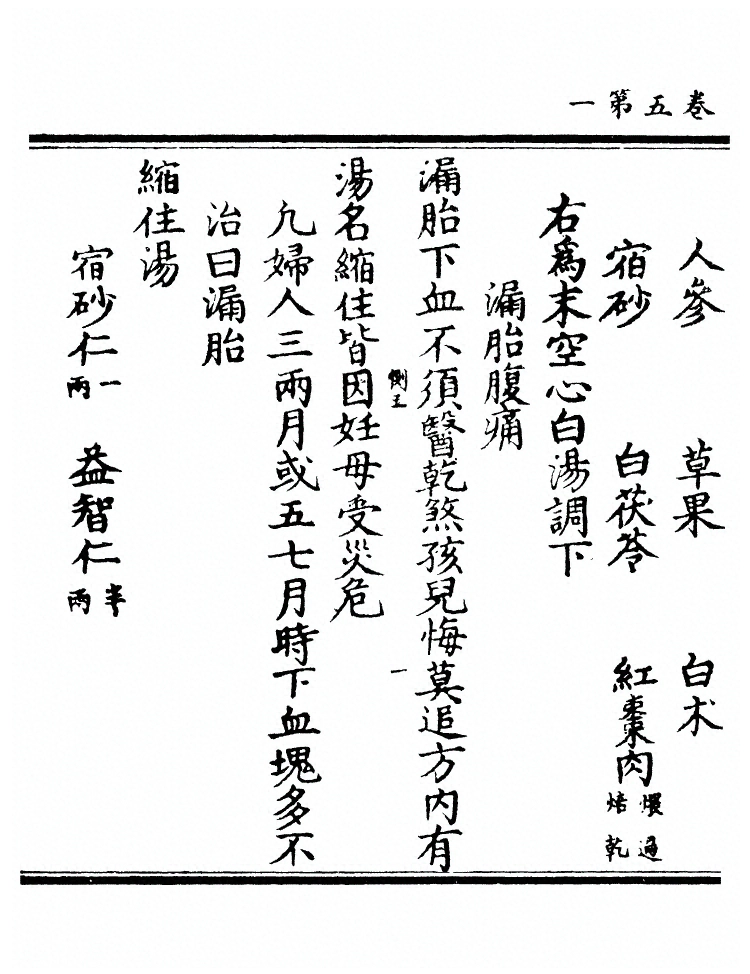 卷五第一
人參 草果 白术
宿砂 白茯苓 紅棗肉煨過焙乾
右為末空心白湯調下
漏胎腹痛
漏胎下血不須醫乾煞孩兒悔莫追方內有
側主
一
湯名縮住皆因妊母受災危
凢婦人三兩月或五七月時下血塊多不
治曰漏胎
縮住湯
宿砂仁一兩 益智仁半兩